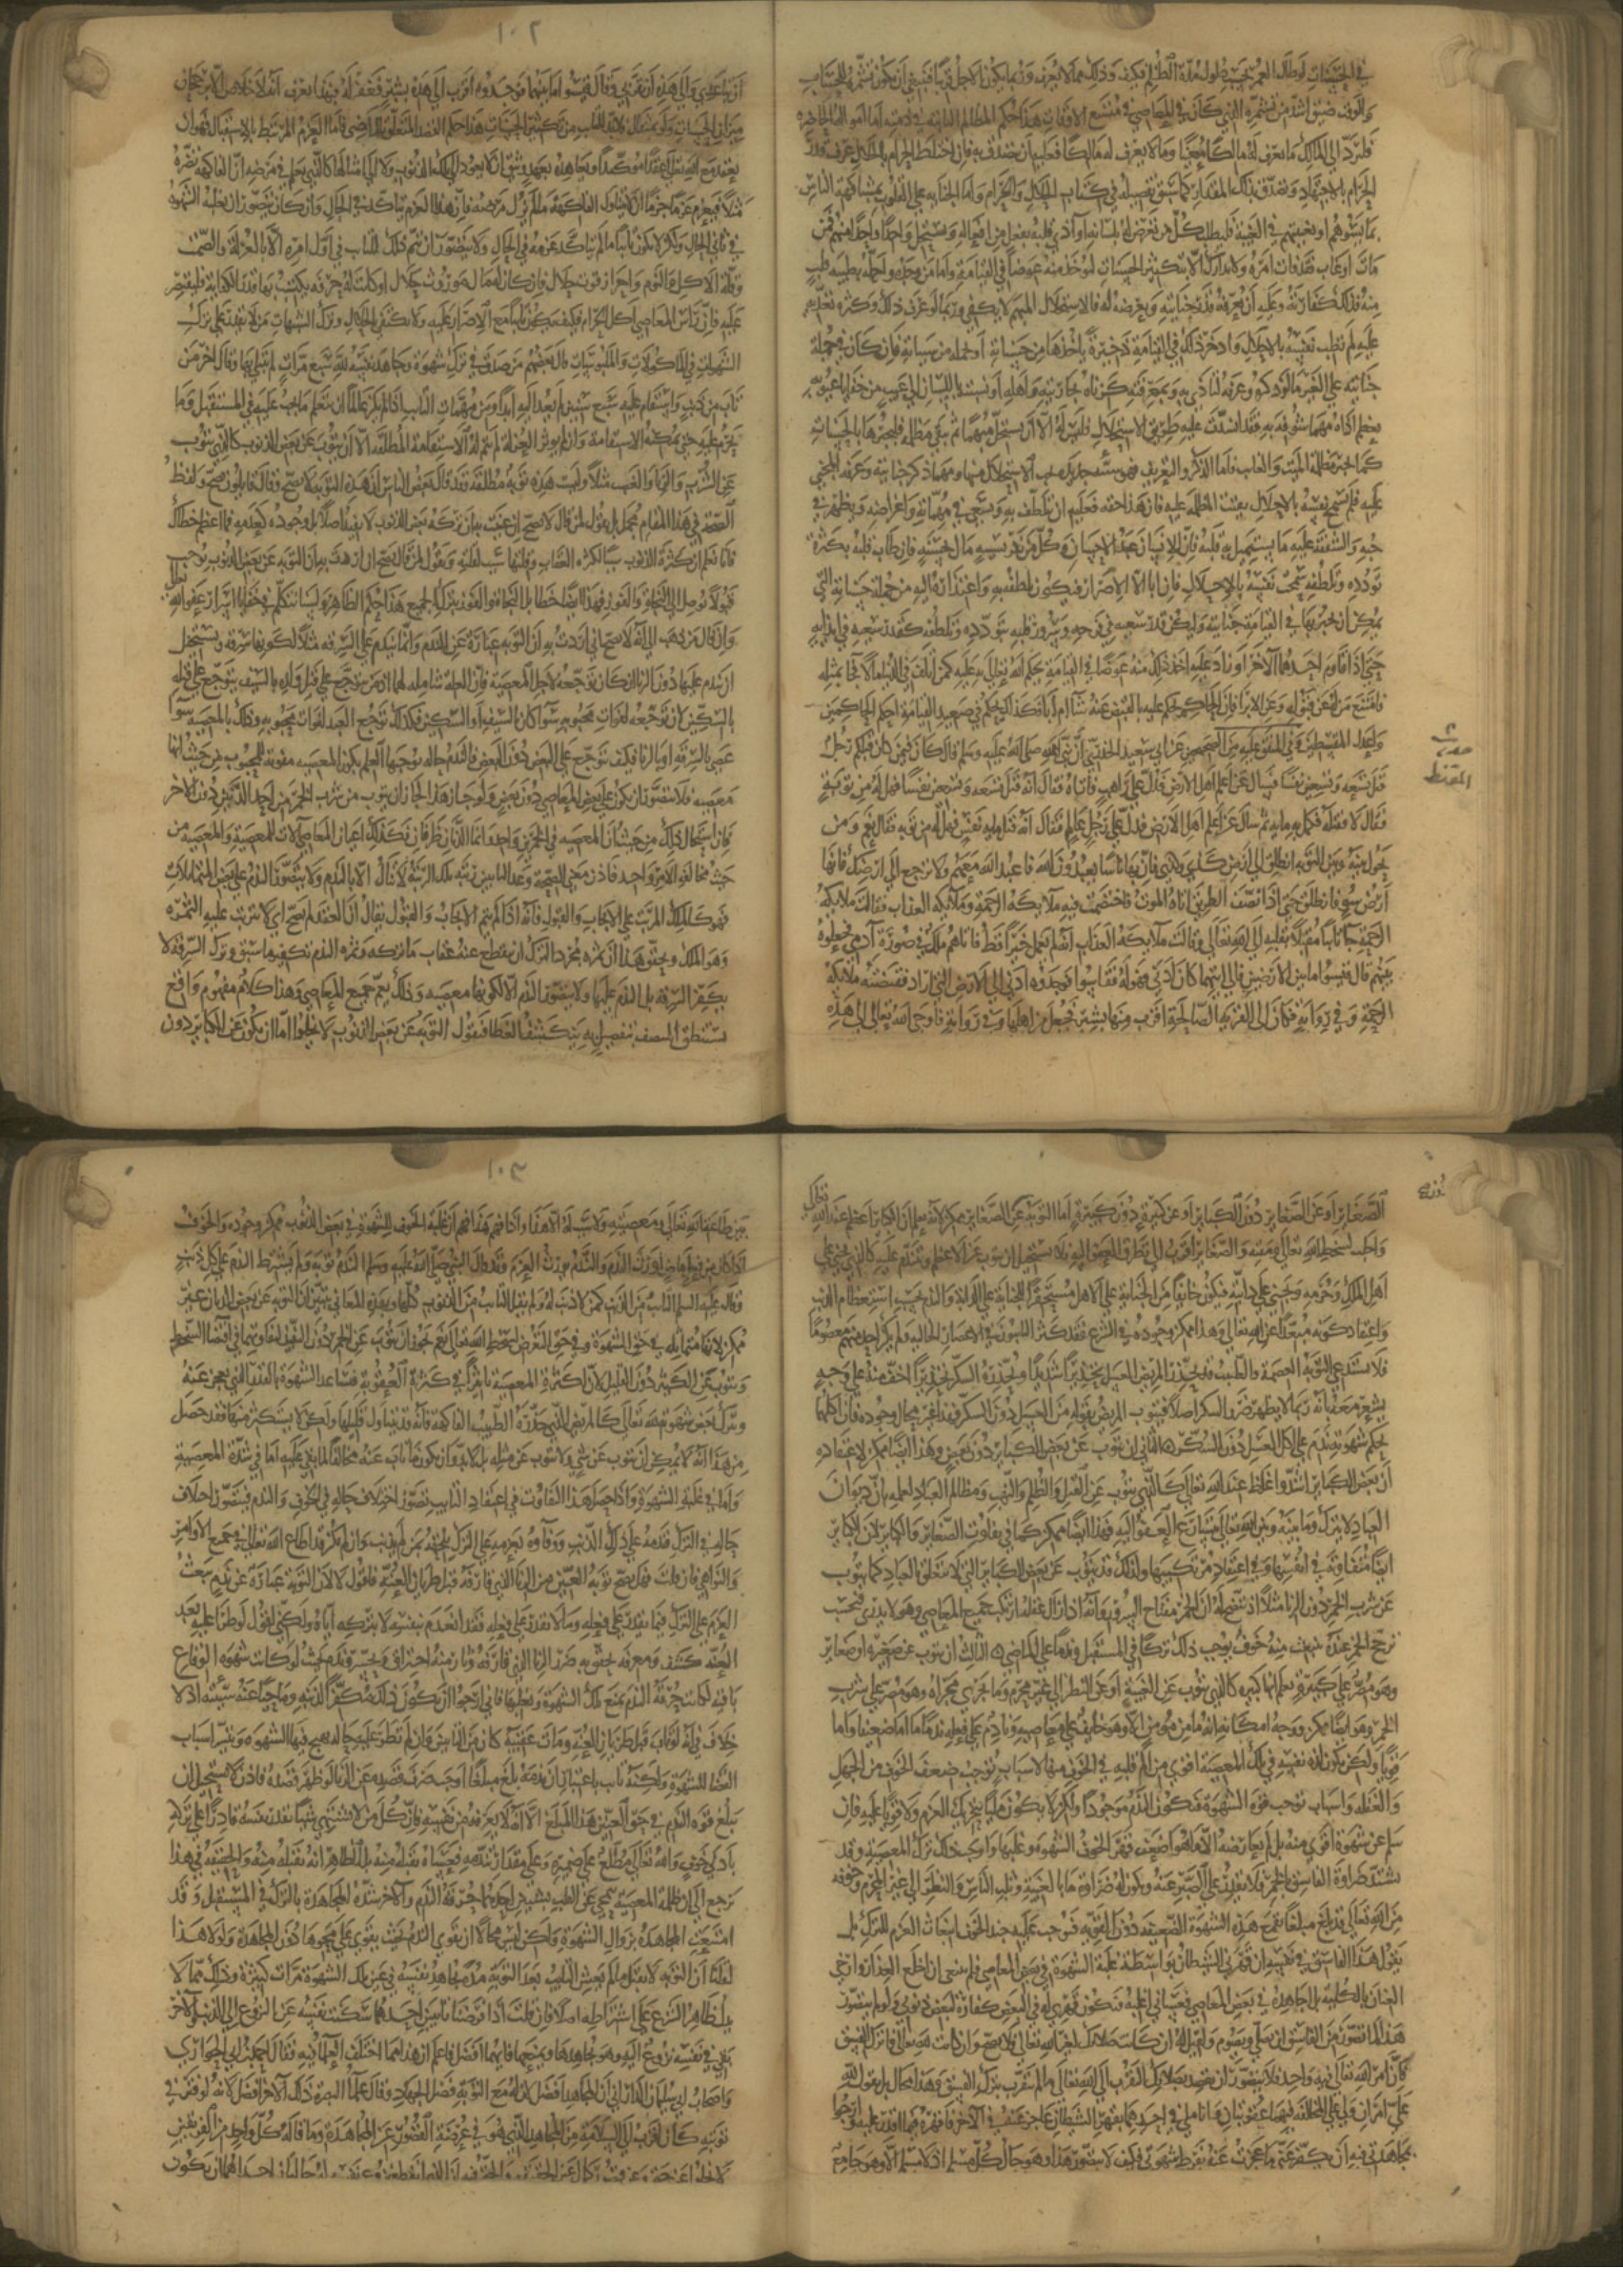 في الحسنات لو طال العمر بحسب طول مدة الظلم فكيف وذلك مما لا يعرف وربما يكون الاجل قريبا فينبغي ان يكون تشمره للحسنات
والوقت ضيق اشد من تشمره الذي كان في المعاصي في متسع الاوقات هذا حكم المظالم الثابتة في ذمته اما امواله الحاضرة
فليرد الى المالك ما يعرف له مالكا معينا وما لا يعرف له مالكا فعليه ان يتصدق به فان اختلط الحرام بالحلال عرف قدر
الحرام بالاجتهاد وتصدق بذلك المقدار كما سبق تفصيله في كتاب الحلال والحرام واما الجناية على القلوب بمشافهة الناس
بما يسوءهم او بغيبتهم في الغيبة فليطلب كل من تعرض له بلسانه او آذى قلبه بفعل من افعاله وليستحل واحدا واحدا منهم فمن
مات او غاب فقد فات امره ولا يتدارك الا بتكثير الحسنات ليؤخذ منه عوضا في القيامة واما من وجده واحله بطيب قلب
منه فذلك كفارته وعليه ان يعرفه قدر جنايته وتعرضه له فالاستحلال المبهم لا يكفي وربما لو عرف ذلك وكثرة تعديه
عليه لم تطب نفسه بالاحلال وادخر ذلك في القيامة ذخيرة ياخذها من حسناته او يحمله من سياته فان كان في جملة
جنايته على الغير ما لو ذكره وعرفه لتاذى به وبمعرفته كزناه بجاريته او اهله او نسبته باللسان الى عيب من خفايا عيوبه
يعظم اذاه مهما شوفه به فقد انسدت عليه طريق الاستحلال فليس له الا ان يستحل مبهما ثم تبقى مظلمة فليجبرها بالحسنات
كما يجبر مظلمة الميت والغايب فاما الذكر والتعريف فهو سيئة جديدة يجب الاستحلال منها ومهما ذكر جنايته وعرفه المجني
عليه فلم تسمح نفسه بالاحلال بقيت المظلمة عليه فان هذا حقه فعليه ان يتلطف به ويسعى في مهماته واغراضه ويظهر في
حبه والشفقة عليه ما يستميل به قلبه فان الانسان عبد الاحسان وكل من نفر بسيئة مال بحسنة فاذا طاب قلبه بكثرة
تودده وتلطفه سمحت نفسه بالاحلال فان ابى الا الاصرار فيكون تلطفه به واعتذاره اليه من جملة حسناته التي
يمكن ان يجبر بها في القيامة جنايته وليكن قدر سعيه في فرحه وسرور قلبه بتودده وتلطفه كقدر سعيه في ايذايه
حتى اذا قاوم احدهما الآخر او زاد عليه اخذ ذلك منه عوضا في القيامة بحكم الله تعالى به عليه كمن اتلف في الدنيا مالا فجا بمثله
فامتنع من له عن قبوله وعن الابرا فان الحاكم يحكم عليه بالقبض عنه شا ام ابى فكذلك يحكم في صعيد القيامة احكم الحاكمين
واعدل المقسطين وفي المتفق عليه من الصحيحين عن ابي سعيد الخدري ان نبي الله صلى الله عليه وسلم قال كان فيمن كان قبلكم رجل
قتل تسعة وتسعين نفسا فسال عن اعلم اهل الارض فدل على راهب فاتاه فقال انه قتل تسعة وتسعين نفسا فهل له من توبة
فقال لا فقتله فكمل به ماية ثم سال عن اعلم اهل الارض فدل على رجل عالم فقال انه قتل ماية نفس فهل له من توبة فقال نعم ومن
يحول بينه وبين التوبة انطلق الى ارض كذى وكذى فان بها ناسا يعبدون الله فاعبد الله معهم ولا ترجع الى ارضك فانها
ارض سوء فانطلق حتى اذا نصف الطريق اتاه الموت فاختصمت فيه ملايكة الرحمة وملايكة العذاب فقالت ملايكة
الرحمة جا تايبا مقبلا بقلبه الى الله تعالى وقالت ملايكة العذاب انه لم يعمل خيرا قط فاتاهم ملك في صورة آدمي فجعلوه
بينهم قال قيسوا ما بين الارضين فالى ايتهما كان ادنى فهو له فقاسوا فوجدوه ادنى الى الارض التي اراد فقبضته ملايكة
الرحمة وفي رواية فكان الى القرية الصالحة اقرب منها بشبر فجعل من اهلها وفي رواية فاوحى الله تعالى الى هذه
حديث
المقسط
١٠٢
ان تباعدي والى هذه ان تقربي وقال قيسوا ما بينهما فوجدوه اقرب الى هذه بشبر فغفر له فبهذا يعرف انه لا خلاص الا برجحان
ميزان الحسنات ولو بمثقال فلابد للتايب من تكثير الحسنات هذا حكم القصد المتعلق بالماضي فاما العزم المرتبط بالاستقبال فهو ان
يعقد مع الله تعالى عقدا موكدا ويعاهده بعهد وثيق ان لا يعود الى تلك الذنوب ولا الى امثالها كالذي يعلم في مرضه ان الفاكهة تضره
مثلا فيعزم عزما جزما انه لا يتناول الفاكهة ما لم يزل مرضه فان هذا العزم يتاكد في الحال وان كان يتصور ان تغلبه الشهوة
في ثاني الحال ولكن لا يكون تايبا ما لم يتاكد عزمه في الحال ولا يتصور ان يتم ذلك للتايب في اول امره الا بالعزلة والصمت
وقلة الاكل والنوم واحراز قوت حلال فان كان له مال موروث حلال او كانت له حرفة يكتسب بها قدر الكفاية فليقتصر
عليه فان راس المعاصي اكل الحرام فكيف يكون تايبا مع الاصرار عليه ولا يكتفي بالحلال وترك الشبهات من لا يقدر على ترك
الشهوات في الماكولات والملبوسات قال بعضهم من صدق في ترك شهوة وجاهد نفسه لله سبع مرات لم يبتلى بها وقال آخر من
تاب من ذنب واستقام عليه سبع سنين لم يعد اليه ابدا ومن مهمات التايب اذا لم يكن عالما ان يتعلم ما يجب عليه في المستقبل وما
يحرم عليه حتى يمكنه الاستقامة وان لم يوثر العزلة لم تتم له الاستقامة المطلقة الا ان يتوب عن بعض الذنوب كالذي يتوب
عن الشرب والزنا والغصب مثلا وليست هذه توبة مطلقة وقد قال بعض الناس ان هذه التوبة لا تصح وقال قايلون تصح ولفظ
الصحة في هذا المقام مجمل بل نقول لمن قال لا تصح ان عنيت به ان تركه بعض الذنوب لا يفيد اصلا بل وجوده كعدمه فما اعظم خطاك
فانا نعلم ان كثرة الذنوب سبب لكثرة العقاب وقلتها سبب لقلته ونقول لمن قال تصح ان اردت به ان التوبة عن بعض الذنوب توجب
قبولا توصل الى النجاة والفوز فهذا ايضا خطا بل النجاة والفوز بترك الجميع هذا حكم الظاهر ولسنا نتكلم في خفايا اسرار عفو الله تعالى
وان قال من ذهب الى انه لا تصح اني اردت به ان التوبة عبارة عن الندم وانما يندم على السرقة مثلا لكونها سرقة ويستحيل
ان يندم عليها دون الزنا ان كان توجعه لاجل المعصية فان العلة شاملة لهما اذ من يتوجع على قتل ولده بالسيف يتوجع على قتله
بالسكين لان توجعه لفوات محبوبه سوا كان بالسيف او السكين فكذلك توجع العبد لفوات محبوبه وذلك بالمعصية سوا
عصى بالسرقة او بالزنا فكيف يتوجع على البعض دون البعض فالندم حالة يوجبها العلم بكون المعصية مفوتة للمحبوب من حيث انها
معصية فلا يتصور ان يكون على بعض المعاصي دون بعض ولو جاز هذا لجاز ان يتوب من شرب الخمر من احد الدنين دون الآخر
فان استحال ذلك من حيث ان المعصية في الخمرين واحد وانما الدنان ظرفان فكذلك اعيان المعاصي آلات للمعصية والمعصية من
حيث مخالفة الامر واحد فاذن معنى الصحة وعد التايبين رتبة تلك الرتبة لا تنال الا بالندم ولا يتصور الندم على بعض المتماثلات
فهو كالملك المرتب على الايجاب والقبول فانه اذا لم يتم الايجاب والقبول يقال ان العقد لم يصح اي لا يترتب عليه الثمرة
وهو الملك وتحقيق هذا ان ثمرة مجرد الترك ان ينقطع عنه عقاب ما تركه وثمرة الندم تكفير ما سبق وترك السرقة لا
يكفر السرقة بل الندم عليها ولا يتصور الندم الا لكونها معصية وذلك يعم جميع المعاصي وهذا كلام مفهوم واقع
يستنطق المنصف بتفصيل به ينكشف الغطا فنقول التوبة عن بعض الذنوب لا تخلوا اما ان يكون عن الكباير دون
الصغاير او عن الصغاير دون الكباير او عن كبيرة دون كبيرة اما التوبة عن الكباير دون الصغاير ممكن لانه يعلم ان الكباير اعظم عند الله تعالى
واجلب لسخط الله تعالى ومقته والصغاير اقرب الى تطرق العفو اليه فلا يستحيل ان يتوب عن الاعظم ويتندم عليه كالذي يجني على
اهل الملك وحرمه ويجني على دابته فيكون خايفا من الجناية على الاهل مستحقرا للجناية على الدابة والندم بحسب استعظام الذنب
واعتقاد كونه مبعدا عن الله تعالى وهذا ممكن وجوده في الشرع فقد كثر التايبون في الاعصار الخالية ولم يكن احد منهم معصوما
فلا تستدعي التوبة العصمة والطبيب قد يحذر المريض العسل تحذيرا شديدا ويحذره السكر تحذيرا اخف منه على وجه
يشعر معه انه ربما لا يظهر ضرر السكر اصلا فيتوب المريض بقوله من العسل دون السكر فهذا غير محال وجوده فان اكلهما
بحكم شهوته ندم على اكل العسل دون السكر الثاني ان يتوب عن بعض الكباير دون بعض وهذا ايضا ممكن لاعتقاده
ان بعض الكباير اشد واغلظ عند الله تعالى كالذي يتوب عن القتل والظلم والنهب ومظالم العباد لعلمه بان ديوان
العباد لا يترك وما بينه وبين الله تعالى يتسارع العفو اليه فهذا ايضا ممكن كما في تفاوت الصغاير والكباير لان الكباير
ايضا متفاوتة في انفسها وفي اعتقاد مرتكبيها ولذلك قد يتوب عن بعض الكباير التي لا تتعلق بالعباد كما يتوب
عن شرب الخمر دون الزنا مثلا اذ يتضح له ان الخمر مفتاح الشرور فانه اذا زال عقله ارتكب جميع المعاصي وهو لا يدري فبحسب
ترجح الخمر عنده ينبعث منه خوف يوجب ذلك تركا في المستقبل وندما على الماضي الثالث ان يتوب عن صغيرة او صغاير
وهو مصر على كبيرة يعلم انها كبيرة كالذي يتوب عن الغيبة او عن النظر الى غير محرم وما يجري مجراه وهو مصر على شرب
الخمر وهو ايضا ممكن ووجه امكانه انه ما من مومن الا وهو خايف على معاصيه ونادم على فعله ندما اما ضعيفا واما
قويا ولكن يكون لذة نفسه في تلك المعصية اقوى من الم قلبه في الخوف منها لاسباب توجب ضعف الخوف من الجهل
والغفلة واسباب توجب قوة الشهوة فيكون الندم موجودا ولكن لا يكون مليا بتحريك العزم ولا قويا عليه فان
سلم عن شهوة اقوى منه بل لم يعارضه الا ما هو اضعف قهر الخوف الشهوة وغلبها واوجب ذلك ترك المعصية وقد
تشتد ضراوة الفاسق بالخمر فلا يقدر على الصبر عنه وتكون له ضراوة ما بالغيبة وثلب الناس والنظر الى غير المحرم وخوفه
من الله تعالى قد بلغ مبلغا يقمع هذه الشهوة الضعيفة دون القوية فيوجب عليه جند الخوف انبعاث العزم للترك بل
يقول هذا الفاسق في نفسه ان قهرني الشيطان بواسطة غلبة الشهوة في بعض المعاصي فلا ينبغي ان اخلع العذار وارخي
العنان بالكلية بل اجاهده في بعض المعاصي فعساني اغلبه فيكون قهري له في البعض كفارة لبعض ذنوبي ولو لم يتصور
هذا لما تصور من الفاسق ان يصلي ويصوم ولقيل له ان كانت صلاتك لغير الله تعالى فلا تصح وان كانت لله تعالى فاترك الفسق
فان امر الله تعالى فيه واحد فلا يتصور ان تقصد بصلاتك التقرب الى الله تعالى ما لم تتقرب بترك الفسق وهذا محال بل يقول لله
علي امران ولي على المخالفة فيهما عقوبتان وانا ملي في احدهما بقهر الشيطان عاجز عنه في الآخر فانا اقهره فيما اقدر عليه وارجوا
بمجاهدتي فيه ان يكفر عني ما عجزت عنه بفرط شهوتي فكيف لا يتصور هذا وهو حال كل مسلم اذ لا مسلم الا وهو جامع
١٠٣
بين طاعة الله تعالى ومعصيته ولا سبب له الا هذا واذا فهم هذا فهم ان غلبة الخوف للشهوة في بعض الذنوب ممكن وجوده والخوف
اذا كان من فعل ماض اورث الندم والندم يورث العزم وقد قال النبي صلى الله عليه وسلم الندم توبة ولم يشترط الندم على كل ذنب
وقال عليه السلم التايب من الذنب كمن لا ذنب له ولم يقل التايب من الذنوب كلها وبهذه المعاني تبين ان التوبة عن بعض الذنوب غير
ممكن لانها متماثلة في حق الشهوة وفي حق التعرض لسخط الله تعالى نعم يجوز ان يتوب عن الخمر دون النبيذ لتفاوتهما في اقتضا السخط
ويتوب عن الكثير دون القليل لان لكثرة المعصية تاثيرا في كثرة العقوبة فيساعد الشهوة بالقدر الذي يعجز عنه
ويترك بعض شهوته لله تعالى كالمريض الذي حذره الطبيب الفاكهة فانه قد يتناول قليلها ولكن لا يستكثر منها فقد حصل
من هذا انه لا يمكن ان يتوب عن شي ولا يتوب عن مثله بل لا بد وان يكون ما تاب عنه مخالفا لما بقي عليه اما في شدة المعصية
واما في غلبة الشهوة واذا حصل هذا التفاوت في اعتقاد التايب تصور اختلاف حاله في الخوف والندم فيتصور اختلاف
حاله في الترك فندمه على ذلك الذنب ووفاوه بعزمه على الترك يلحقه بمن لم يذنب وان لم يكن قد اطاع الله تعالى في جميع الاوامر
والنواهي فان قلت فهل تصح توبة العنين من الزنا الذي قارفه قبل طريان العنة فاقول لا لان التوبة عبارة عن ندم يبعث
العزم على الترك فيما يقدر على فعله وما لا يقدر على فعله فقد انعدم بنفسه لا بتركه اياه ولكني اقول لو طرا عليه بعد
العنة كشف ومعرفة تحقق به ضرر الزنا الذي قارفه وثار منه احتراق وتحسر وندم بحيث لو كانت شهوة الوقاع
باقية لكانت حرقة الندم تمنع تلك الشهوة وتغلبها فاني ارجوا ان يكون ذلك مكفرا لذنبه وماحيا عنه سيئته اذ لا
خلاف في انه لو تاب قبل طريان العنة ومات عقيبه كان من التايبين وان لم تطر عليه حالة تهيج فيها الشهوة وتيسر اسباب
القضا للشهوة ولكنه تايب باعتبار ان ندمه بلغ مبلغا اوجب صرف قصده عن الزنا لو ظهر قصده فاذن لا يستحيل ان
يبلغ قوة الندم في حق العنين هذا المبلغ الا انه لا يعرفه من نفسه فان كل من لا يشتهي شيا يقدر نفسه قادرا على تركه
بادنى خوف والله تعالى مطلع على ضميره وعلى مقدار ندمه فعساه يقبله منه بل الظاهر انه يقبله منه والحقيقة في هذا
ترجع الى ان ظلمة المعصية تنمحي عن القلب بشيئين احدهما حرقة الندم والآخر شدة المجاهدة بالترك في المستقبل وقد
امتنعت المجاهدة بزوال الشهوة ولكن ليس محالا ان يقوى الندم بحيث يقوى على محوها دون المجاهدة ولولا هذا
لقلنا ان التوبة لا تقبل ما لم يعش التايب بعد التوبة مدة يجاهد نفسه في عين تلك الشهوة مرات كثيرة وذلك مما لا
يدل ظاهر الشرع على اشتراطه اصلا فان قلت اذا فرضنا تايبين احدهما سكنت نفسه عن النزوع الى الذنب والآخر
بقي في نفسه نزوع اليه وهو يجاهدها ويمنعها فايهما افضل فاعلم ان هذا مما اختلف العلما فيه فقال احمد بن ابي الحواري
واصحاب ابي سليمان الداراني ان المجاهد افضل لان له مع التوبة فضل الجهاد وقال علما البصرة ذلك الآخر افضل لانه لو فتر في
توبته كان اقرب الى السلامة من المجاهد الذي هو في عرضة الفتور عن المجاهدة وما قاله كل واحد من الفريقين
لا يخلوا عن حق وعن قصور عن كمال الحقيقة والحق فيه ان الذي انقطع نزوعه له حالتان احداهما ان يكون